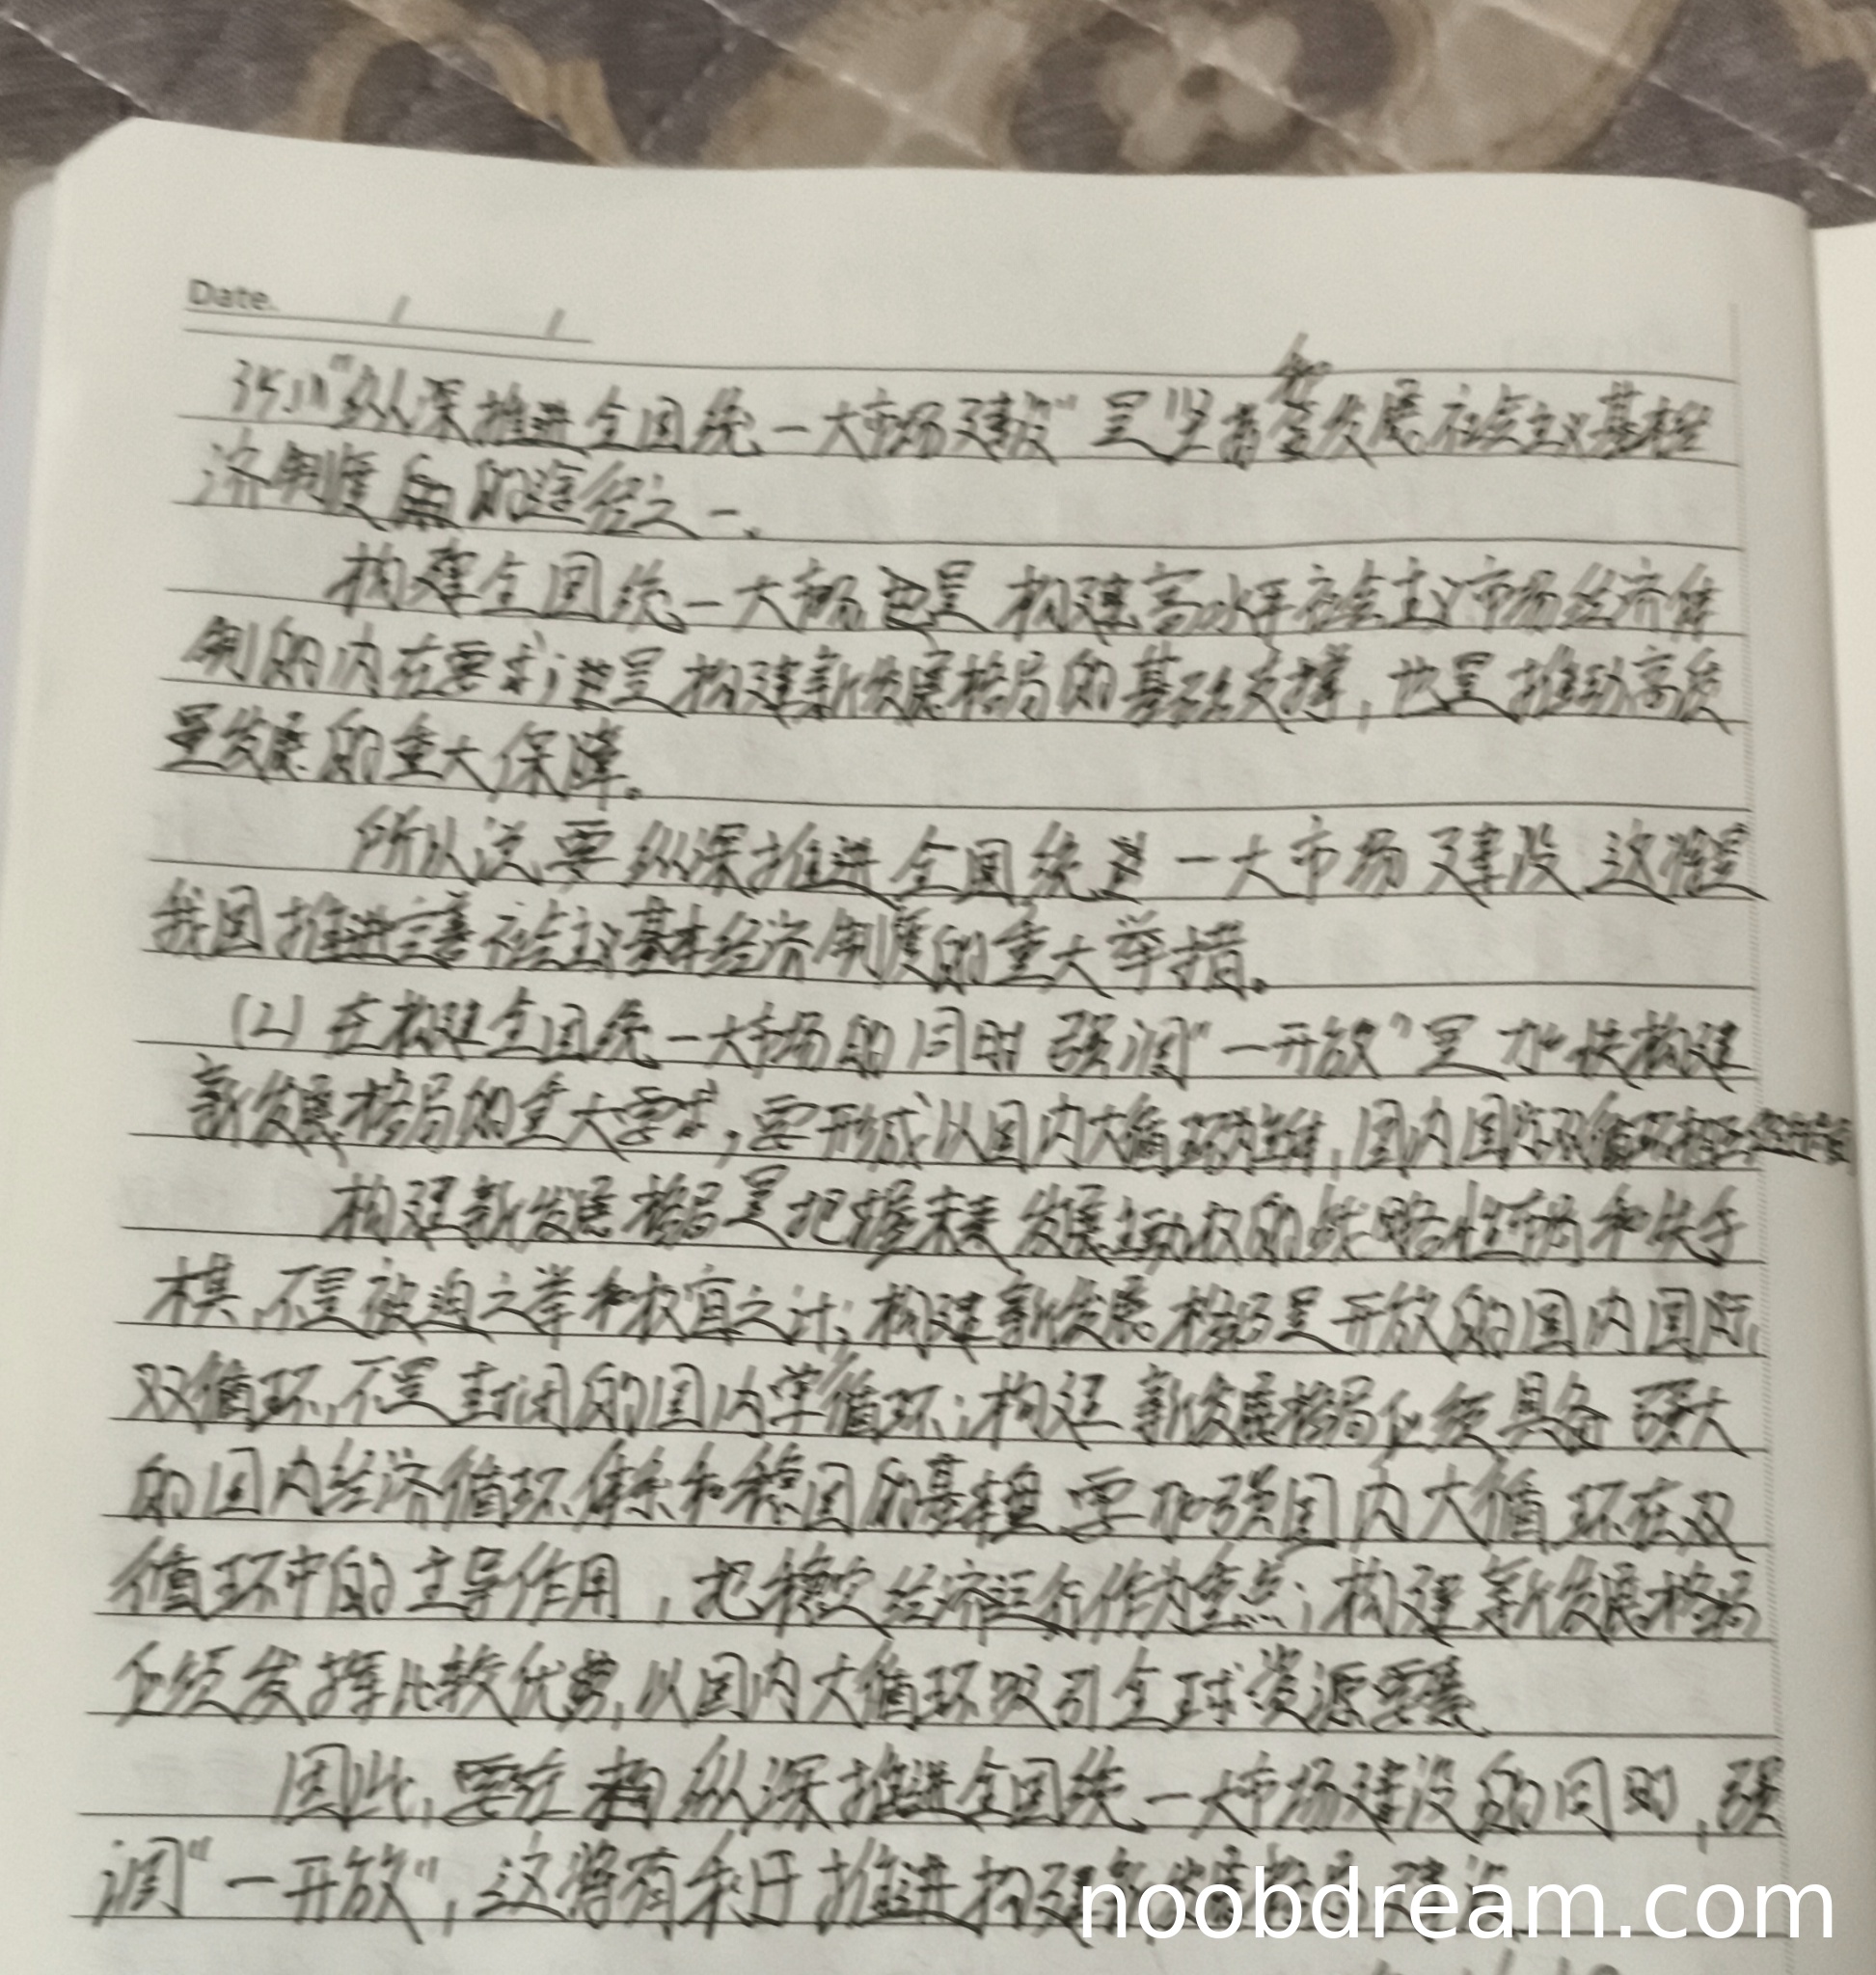 Date. / /
35.(1)"纵深推进全国统一大市场建设"是坚持和发展社会主义基本经
济制度的途径之一。
构建全国统一大市场也是构建高水平社会主义市场经济体
制的内在要求;也是构建新发展格局的基础支撑,也是推动高质
量发展的重大保障。
所以说要纵深推进全国统一大市场建设 这将是
我国推进完善社会主义基本经济制度的重大举措。
(2)在构建全国统一大市场的同时 强调"一开放"是加快构建
新发展格局的重大要求,要形成以国内大循环为主体,国内国际双循环相互促进
构建新发展格局是把握未来发展主动权的战略性布局和先手
棋,不是被迫之举和权宜之计;构建新发展格局是开放的国内国际
双循环,不是封闭的国内单循环;构建新发展格局必须具备强大
的国内经济循环体系和稳固的基本盘 要加强国内大循环在双
循环中的主导作用,把稳定经济运行作为重点;构建新发展格局
必须发挥比较优势,以国内大循环吸引全球资源要素
因此,要在纵深推进全国统一大市场建设的同时,强
调"一开放",这将有利于推进构建新发展格局
noobdream.com